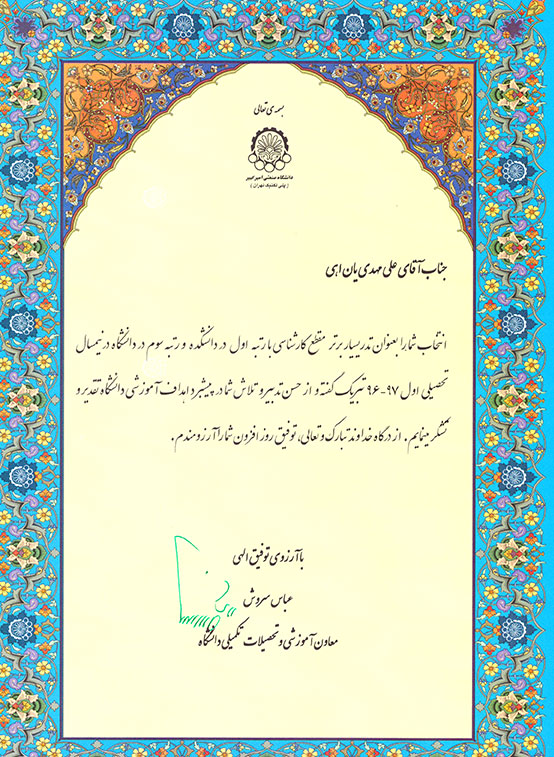 بسمه تعالی
دانشگاه صنعتی امیرکبیر
( پلی تکنیک تهران )
جناب آقای علی مهدی یان اهی
انتخاب شما را بعنوان تدریسیار برتر مقطع کارشناسی با رتبه اول در دانشکده و رتبه سوم در دانشگاه در نیمسال
تحصیلی اول ۹۷-۹۶ تبریک گفته و از حسن تدبیر و تلاش شما در پیشبرد اهداف آموزشی دانشگاه تقدیر و
تشکر مینمایم. از درگاه خداوند تبارک و تعالی، توفیق روز افزون شما را آرزومندم.
با آرزوی توفیق الهی
عباس سروش
معاون آموزشی و تحصیلات تکمیلی دانشگاه